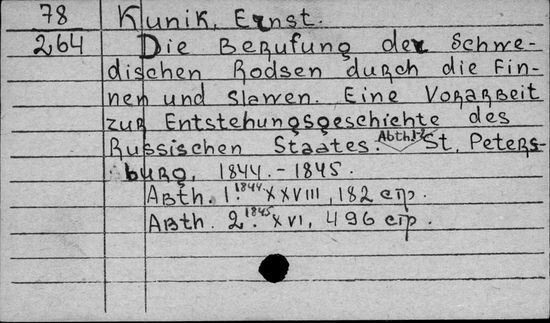 78 Kunik, Ernst.
264 Die Berufung der Schwe-
dischen Rodsen durch die Fin-
nen und Slawen. Eine Vorarbeit
zur Entstehungsgeschichte des
Russischen Staates. Abth. 1-2 St. Peters-
burg, 1844.-1845.
Abth. 1. 1844 XXVIII, 182 стр.
Abth. 2. 1845 XVI, 496 стр.